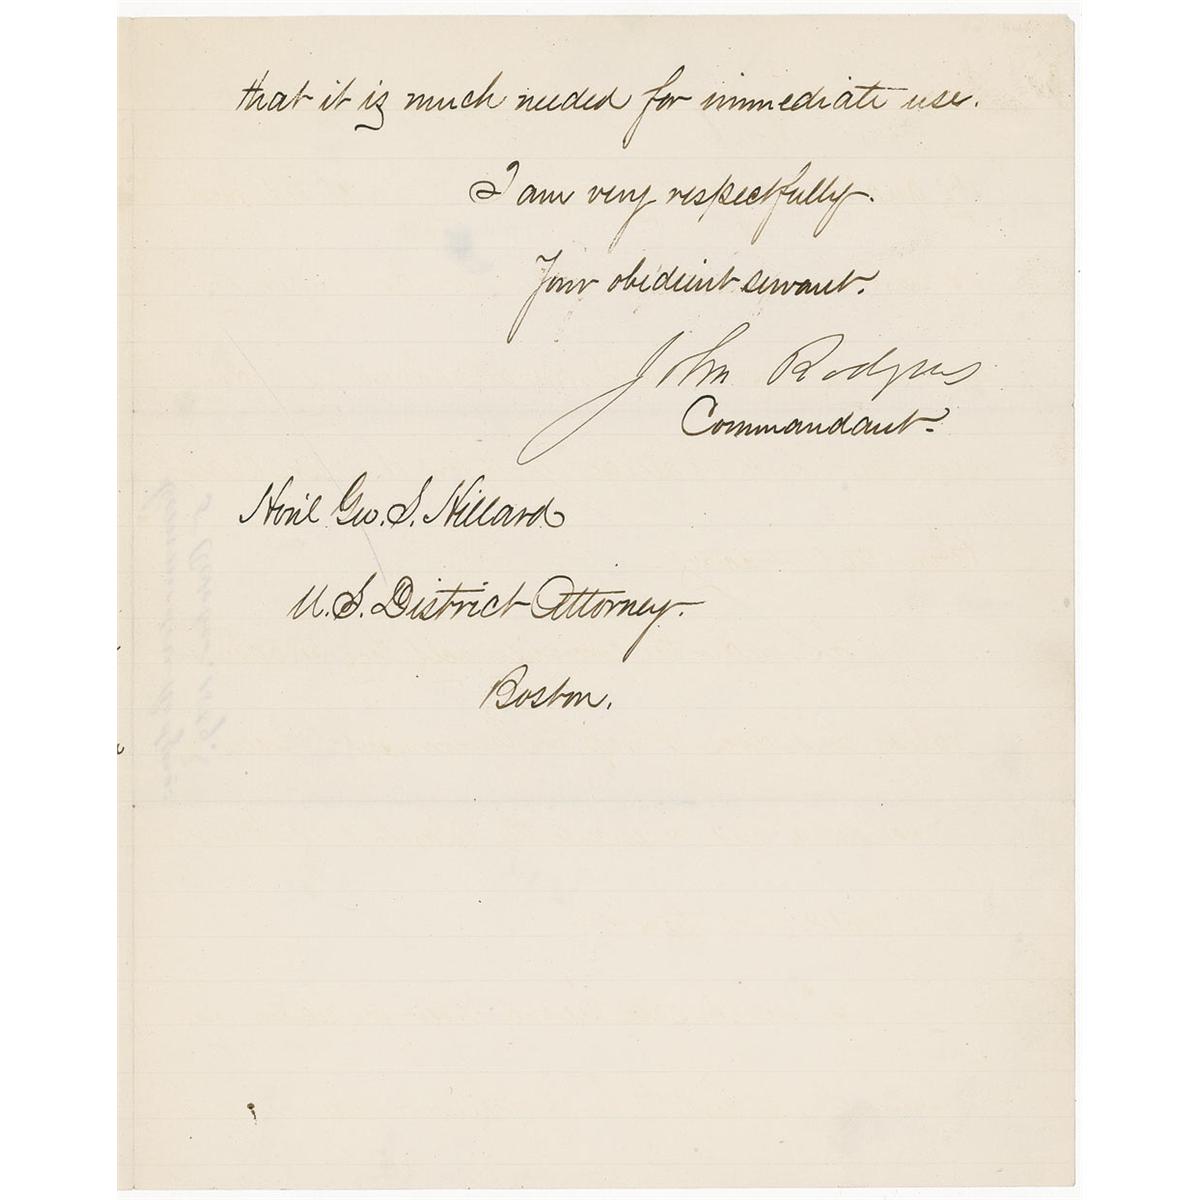 that it is much needed for immediate use.
I am very respectfully.
Your obedient servant.
John Rodgers
Commandant.
Hon'l Geo. S. Hillard
U. S. District Attorney.
Boston.